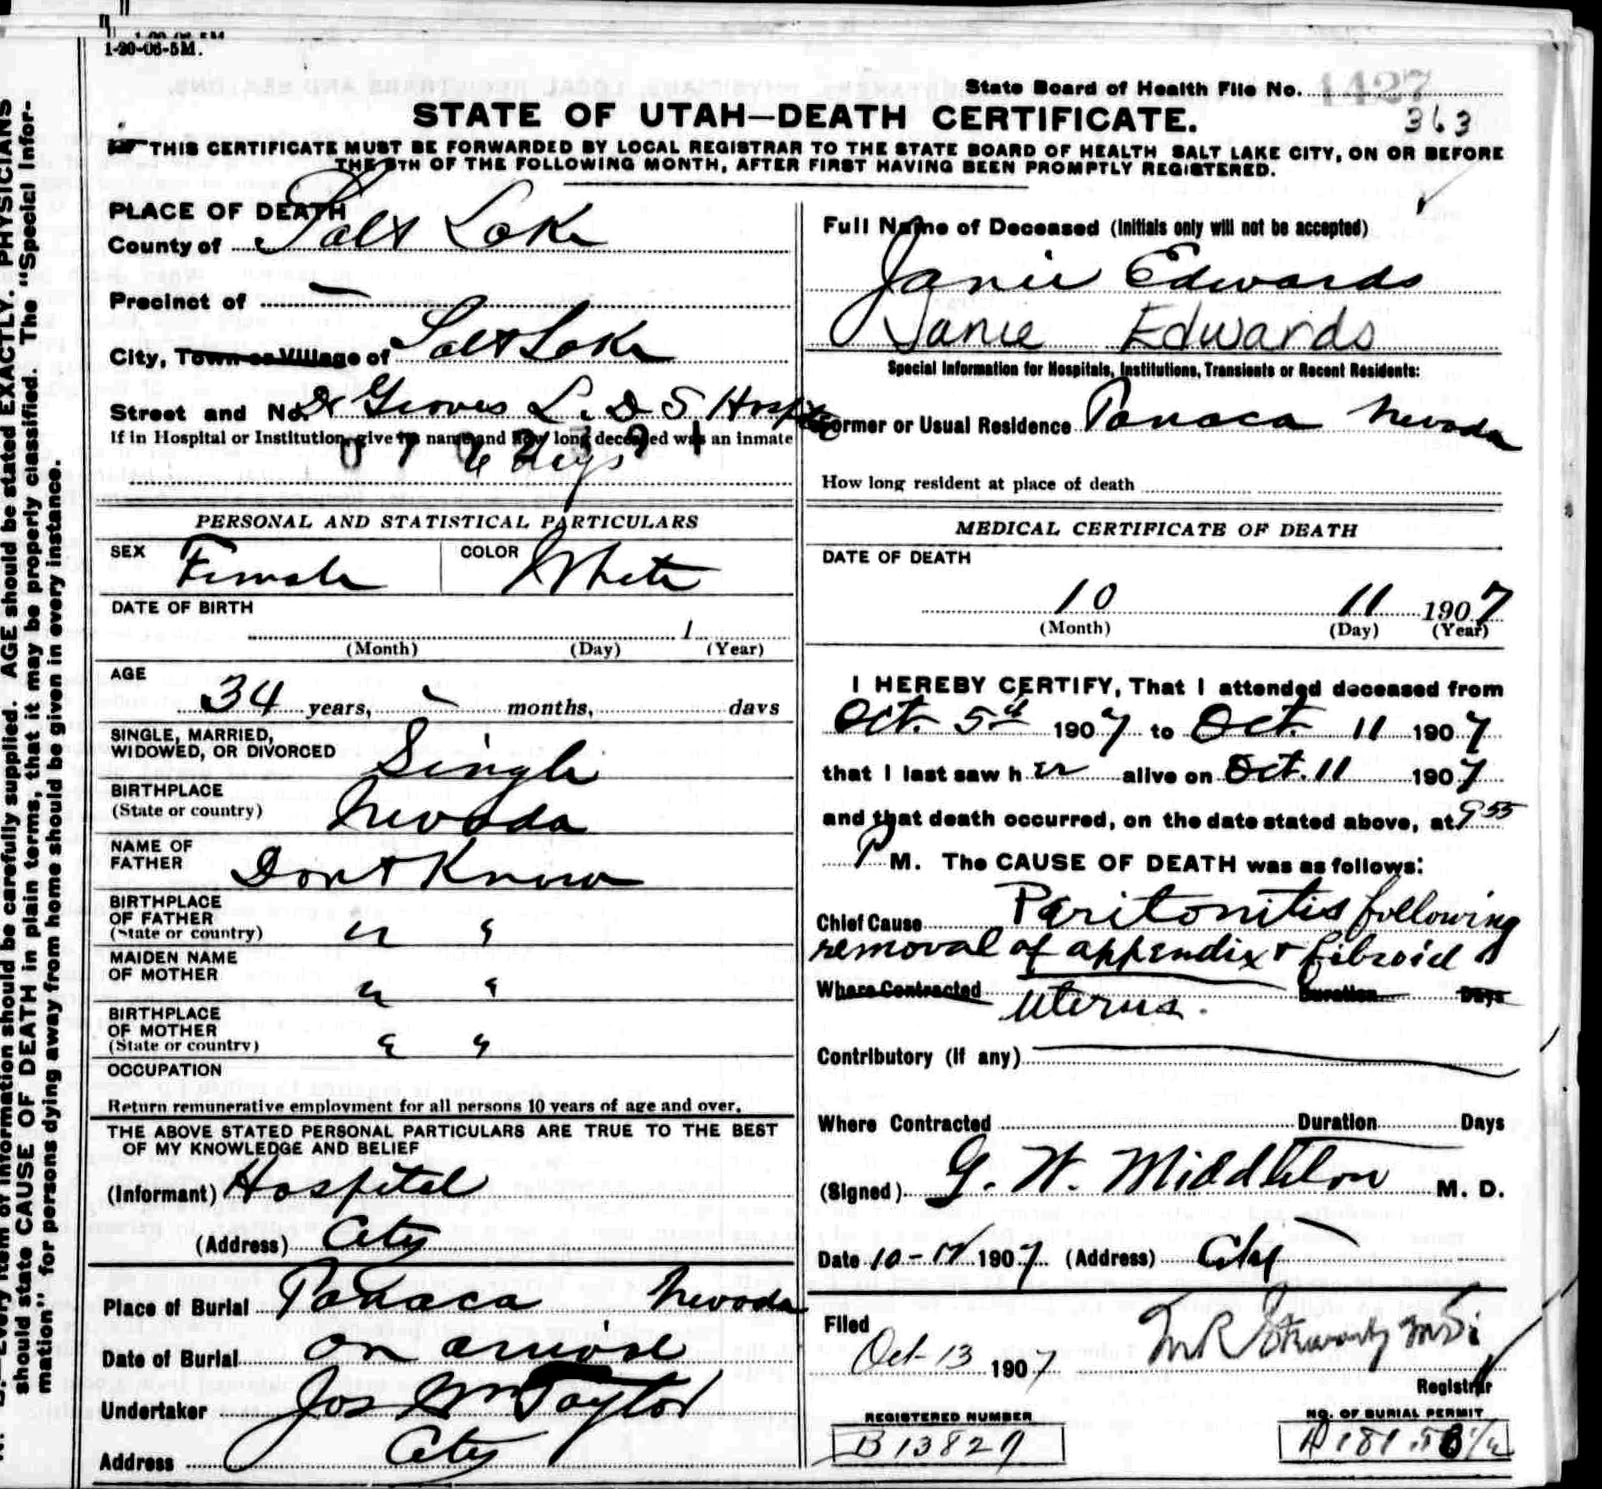 1-20-06-5M.
State Board of Health File No. 1427
STATE OF UTAH—DEATH CERTIFICATE.
363
THIS CERTIFICATE MUST BE FORWARDED BY LOCAL REGISTRAR TO THE STATE BOARD OF HEALTH SALT LAKE CITY, ON OR BEFORE
THE 5TH OF THE FOLLOWING MONTH, AFTER FIRST HAVING BEEN PROMPTLY REGISTERED.
PLACE OF DEATH
County of Salt Lake
Precinct of —
City, Town or Village of Salt Lake
Street and No. Dr Groves L. D S Hospital
If in Hospital or Institution, give its name and how long deceased was an inmate
6 days
PERSONAL AND STATISTICAL PARTICULARS
SEX Female COLOR White
DATE OF BIRTH
1
(Month) (Day) (Year)
AGE
34 years, - months, days
SINGLE, MARRIED,
WIDOWED, OR DIVORCED Single
BIRTHPLACE
(State or country) Nevada
NAME OF
FATHER Dont Know
BIRTHPLACE
OF FATHER
(State or country) " "
MAIDEN NAME
OF MOTHER " "
BIRTHPLACE
OF MOTHER
(State or country) " "
OCCUPATION
Return remunerative employment for all persons 10 years of age and over.
THE ABOVE STATED PERSONAL PARTICULARS ARE TRUE TO THE BEST
OF MY KNOWLEDGE AND BELIEF
(Informant) Hospital
(Address) City
Place of Burial Panaca Nevada
Date of Burial on arrival
Undertaker Jos Wm Taylor
Address City
Full Name of Deceased (Initials only will not be accepted)
Janie Edwards
Janie Edwards
Special Information for Hospitals, Institutions, Transients or Recent Residents:
Former or Usual Residence Panaca Nevada
How long resident at place of death
MEDICAL CERTIFICATE OF DEATH
DATE OF DEATH
10 11 1907
(Month) (Day) (Year)
I HEREBY CERTIFY, That I attended deceased from
Oct. 5th 1907 to Oct. 11 1907
that I last saw her alive on Oct. 11 1907
and that death occurred, on the date stated above, at 9 55
P M. The CAUSE OF DEATH was as follows:
Chief Cause Peritonitis following
removal of appendix & fibroid of
Where Contracted uterus. Duration Days
Contributory (if any)
Where Contracted Duration Days
(Signed) G. W. Middleton M. D.
Date 10-12 1907 (Address) City
Filed
Oct-13 1907
Registrar
REGISTERED NUMBER
B13827
NO. OF BURIAL PERMIT
should state CAUSE OF DEATH in plain terms, that it may be properly classified. The "Special Infor-
mation" for persons dying away from home should be given in every instance.
Every item of information should be carefully supplied. AGE should be stated EXACTLY. PHYSICIANS